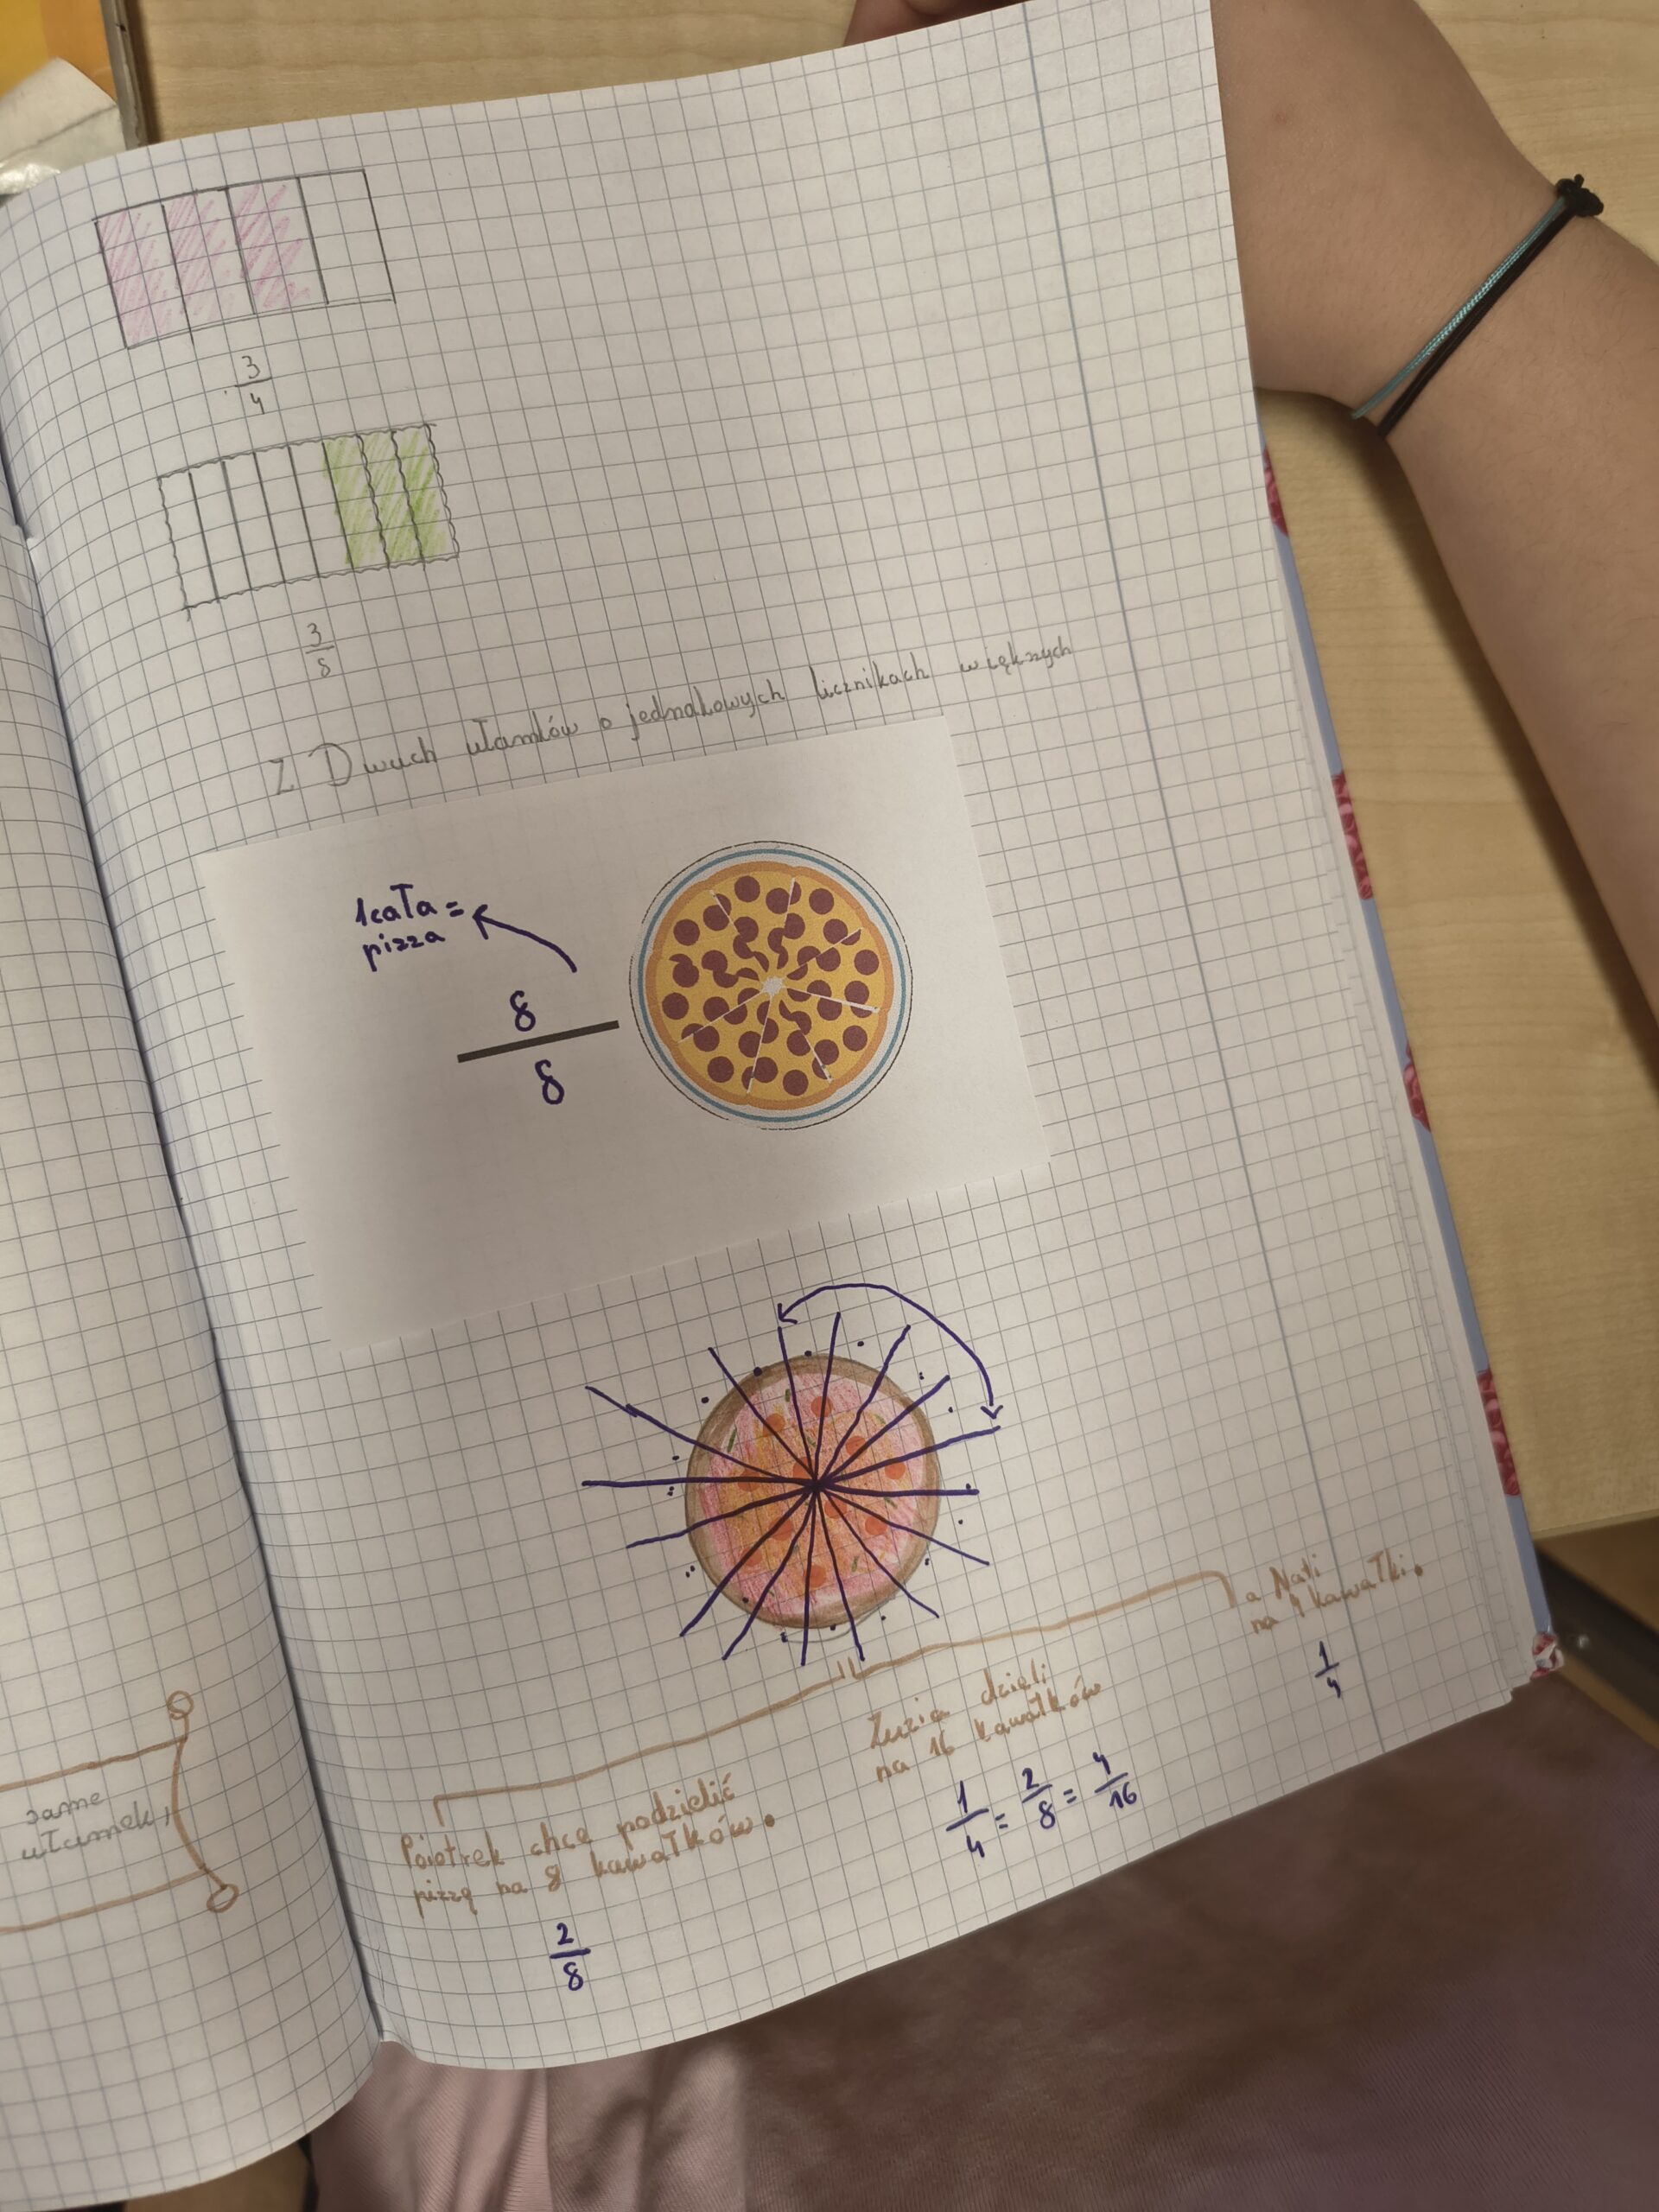 3
4
3
8
Z Dwuch ułamków o jednakowych licznikach większych
1 cała =
pizza
8
8
a Nati
na 4 kawałki.
1
4
Zuzia dzieli
na 16 kawałków
1/4 = 2/8 = 4/16
Poiotrek chce podzielić
pizzę na 8 kawałków.
2
8
same
ułamek,